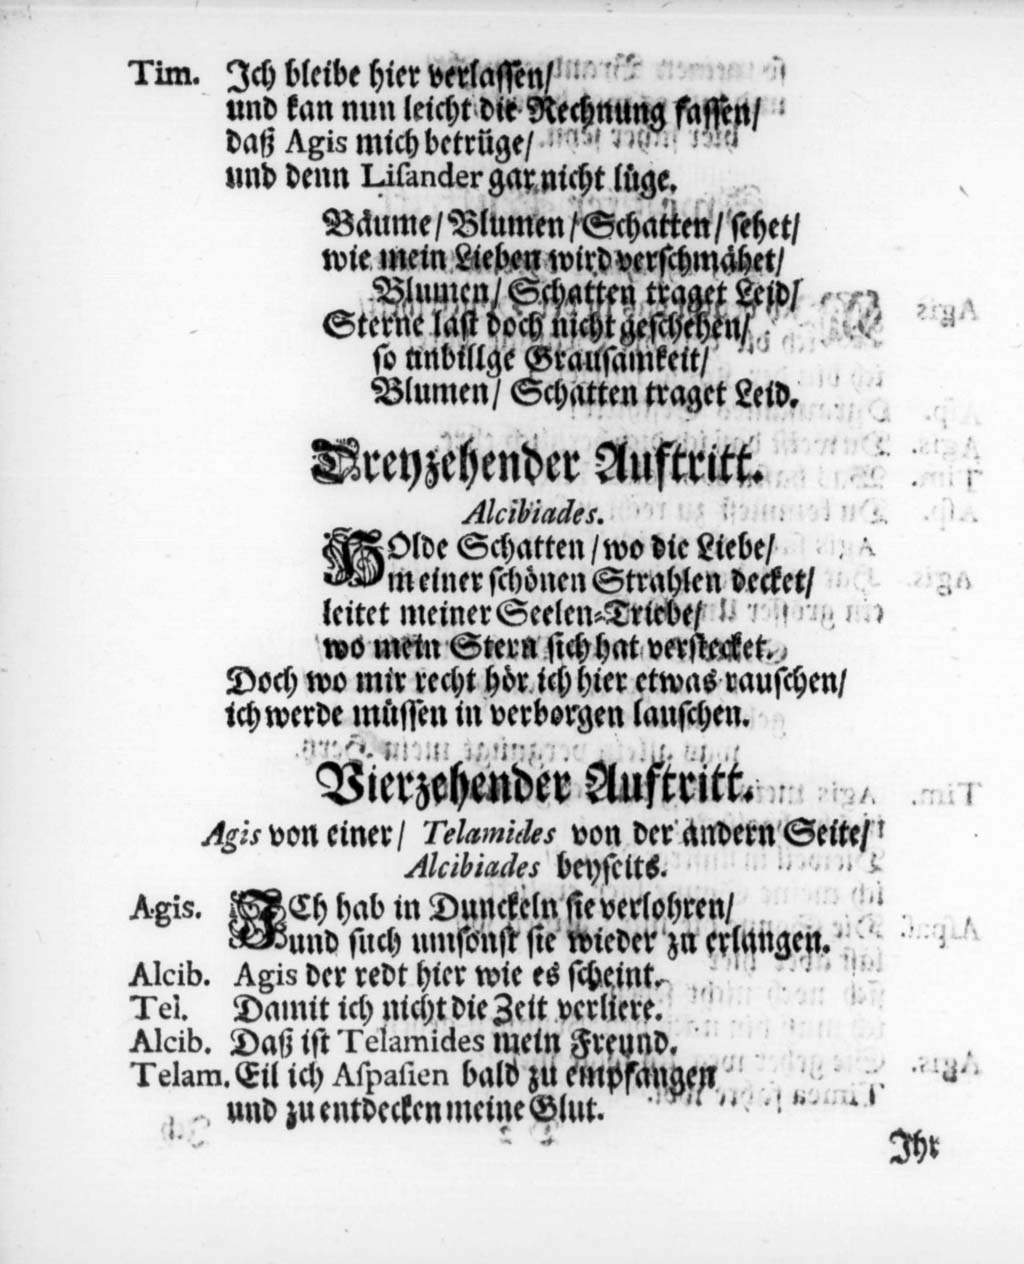 Tim. Ich bleibe hier verlassen/
und kan nun leicht die Rechnung fassen/
daß Agis mich betrüge/
und denn Lisander gar nicht lüge.
Bäume/ Blumen/ Schatten/ sehet/
wie mein Lieben wird verschmähet/
Blumen/ Schatten traget Leid/
Sterne last doch nicht geschehen/
so unbillge Grausamkeit/
Blumen/ Schatten traget Leid.
Dreyzehender Auftritt.
Alcibiades.
HOlde Schatten/ wo die Liebe/
meiner schönen Strahlen decket/
leitet meiner Seelen-Triebe/
wo mein Stern sich hat verstecket.
Doch wo mir recht hör ich hier etwas rauschen/
ich werde müssen in verborgen lauschen.
Vierzehender Auftritt.
Agis von einer/ Telamides von der andern Seite/
Alcibiades beyseits.
Agis. ICh hab in Dunckeln sie verlohren/
und such umsonst sie wieder zu erlangen.
Alcib. Agis der redt hier wie es scheint.
Tel. Damit ich nicht die Zeit verliere.
Alcib. Daß ist Telamides mein Freund.
Telam. Eil ich Aspasien bald zu empfangen
und zu entdecken meine Glut.
Ihr